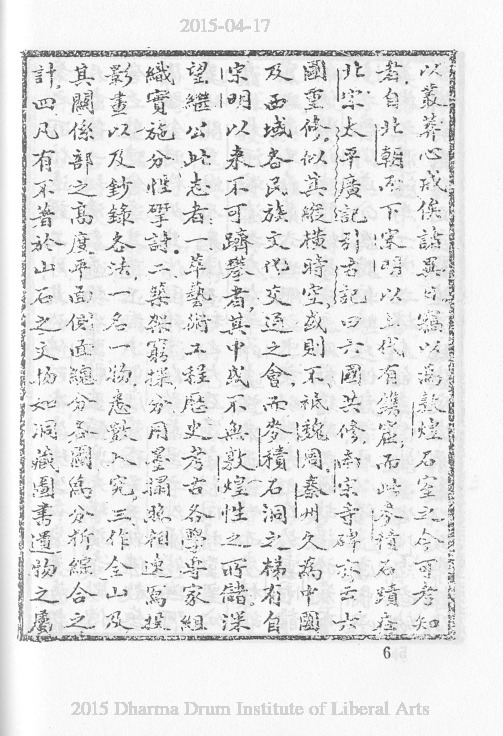 2015-04-17
以叢葬心成俟諸異日竊以為敦煌石室之今可考知
者自北朝而下宋明以上代有鐫窟而此麥積石蹟在
北宋太平廣記引古記曰六國共修南宋寺碑亦云六
國重修似其縱橫時空或則不祇魏周秦州久為中國
及西域各民族文化交通之會而麥積石洞之梯有自
宋明以來不可躋攀者其中或不無敦煌性之所儲深
望繼公此志者一萃藝術工程歷史考古各學專家組
織實施分性擘討二築架窮探分用墨搨照相速寫模
影畫以及鈔錄各法一名一物悉數入完三作全山及
其關係部之高度平面側面總分各圖為分析綜合之
計四凡有不著於山石之文物如洞藏圖書遺物之屬
6
2015 Dharma Drum Institute of Liberal Arts